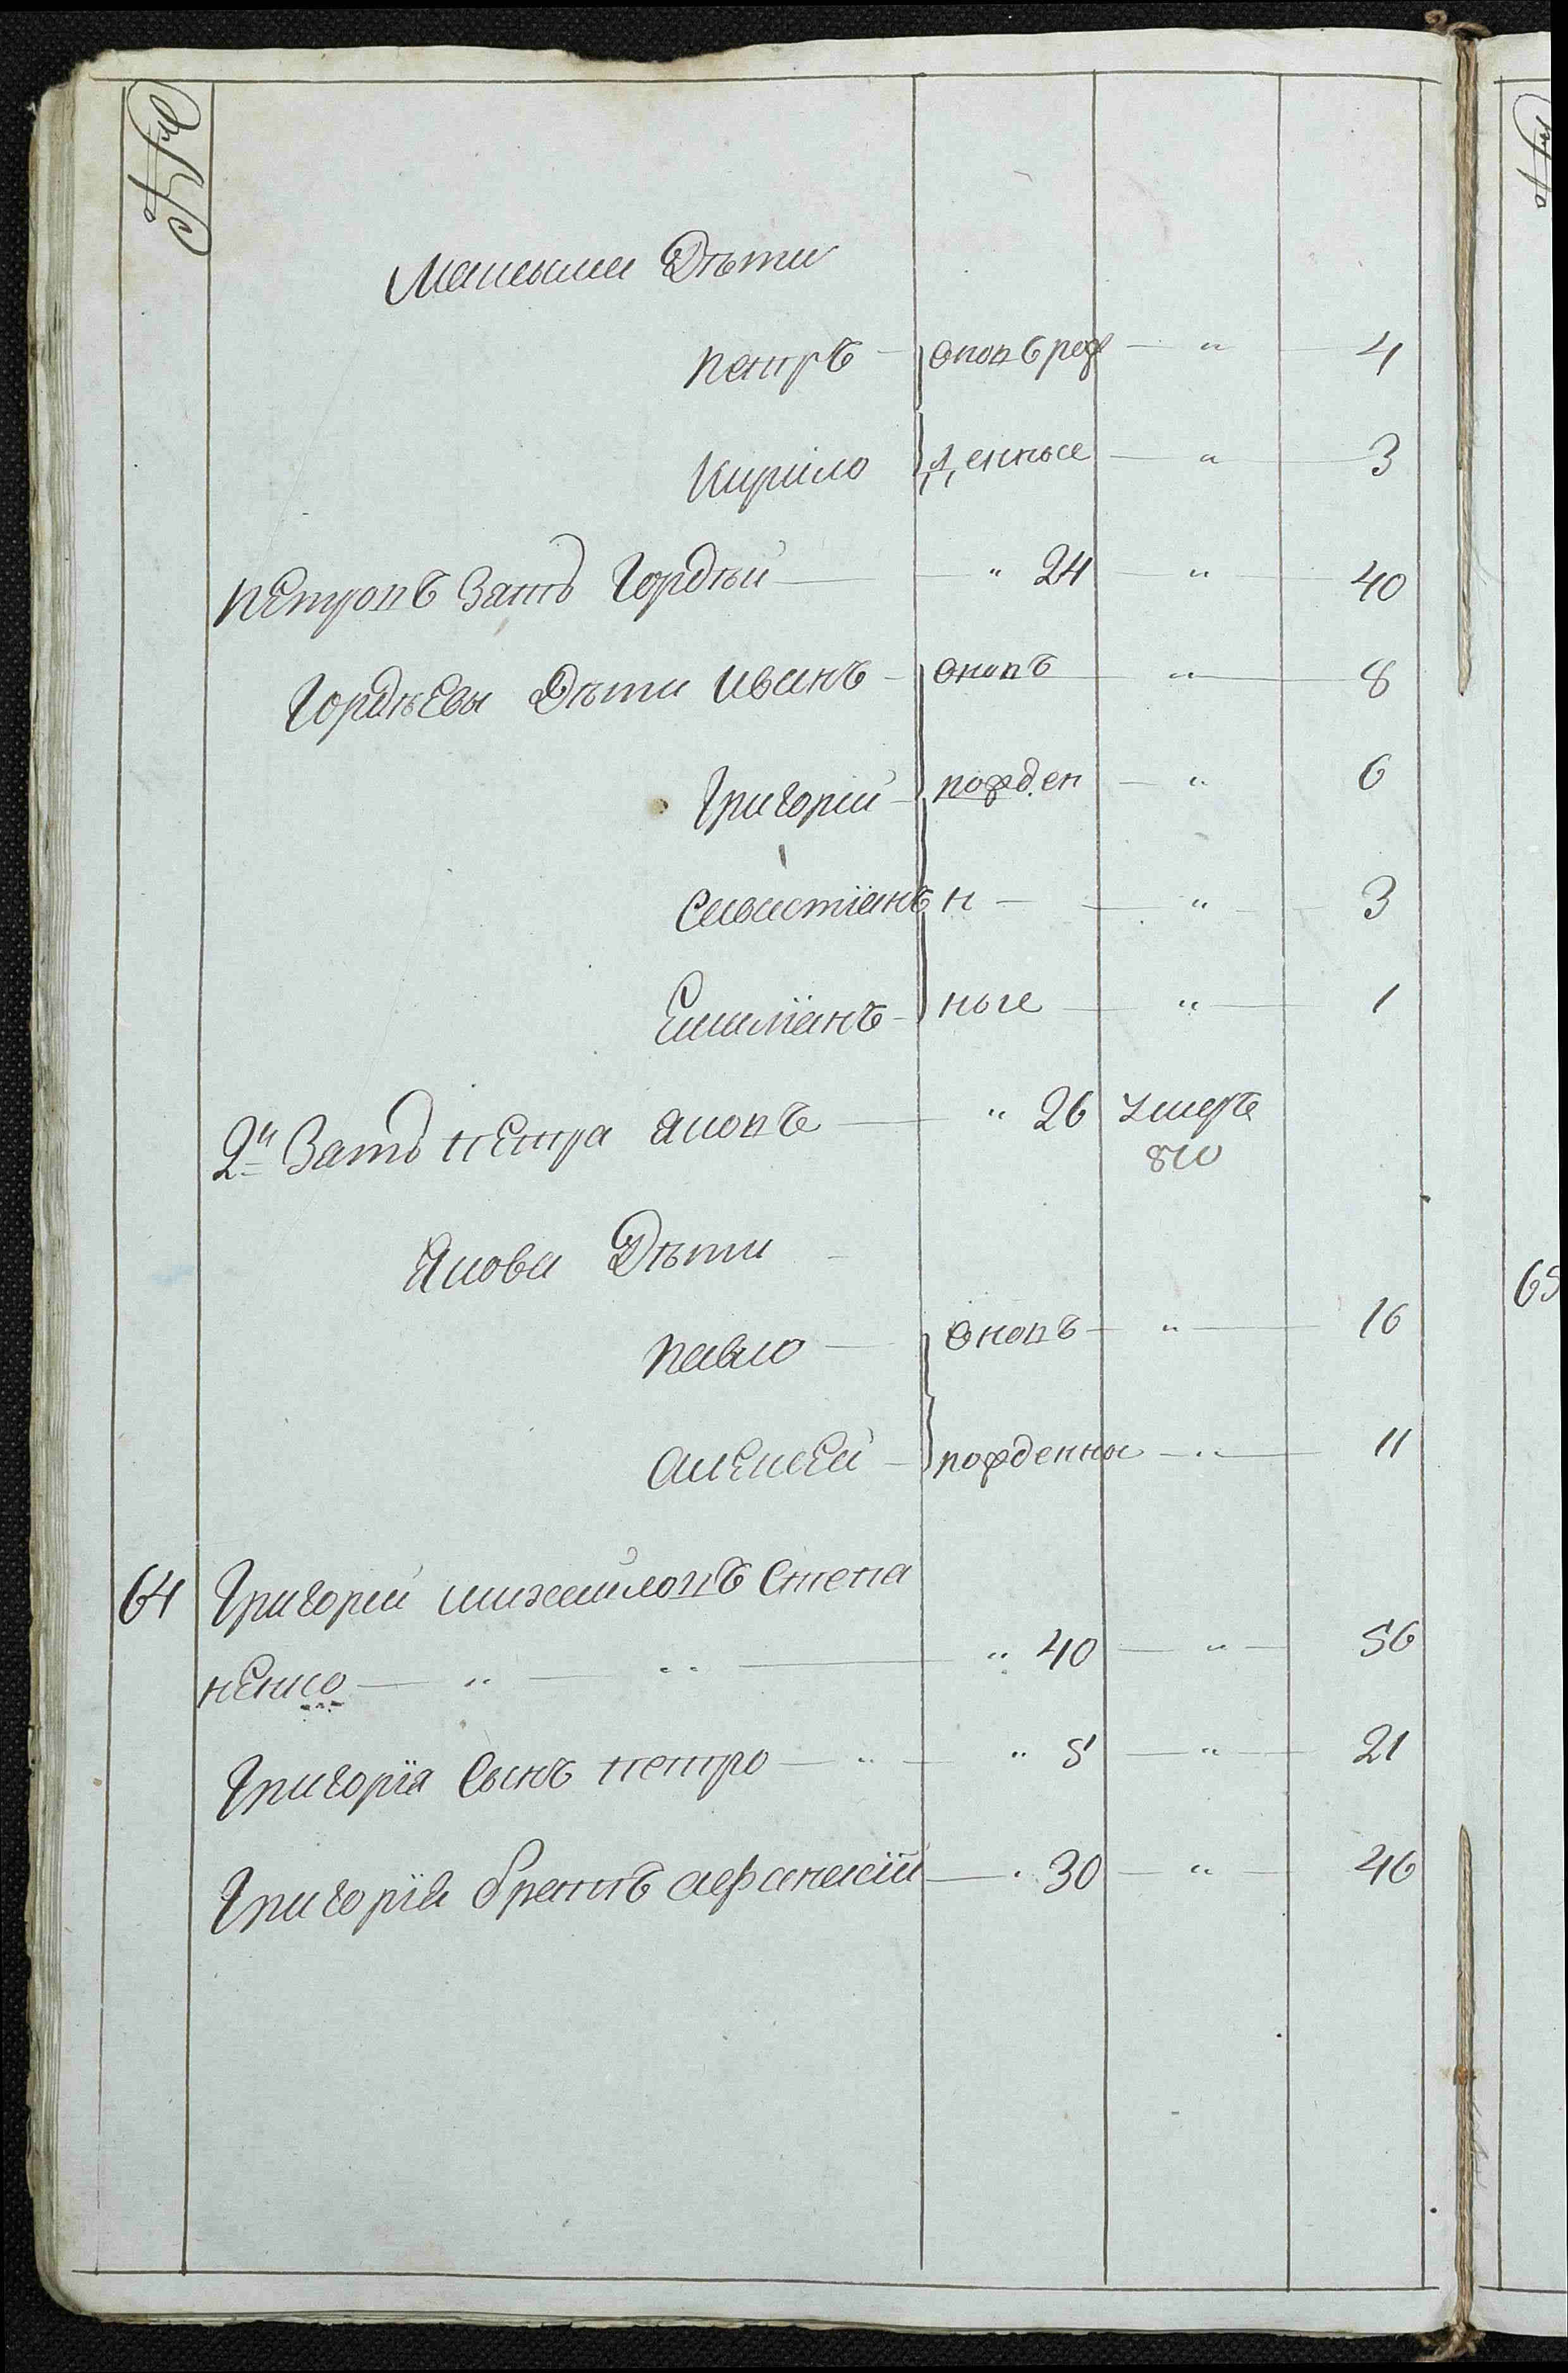 Максыма Дѣти
петръ — вновъ рож — " — 4
Кирило денные — " — 3
петровъ Зять Гордѣй — " 24 — " — 40
Гордѣевы Дѣти иванъ — вновъ — " — 8
Григорій — рожден — " — 6
Савастіянъ н — " — 3
Емиліянъ — ные — " — 1
2й Зять петра Яковъ — " 26 умеръ
810
Якова Дѣти —
павло — вновъ — " — 16
алексей — рожденны — " — 11
64 Григорій михайловъ Степа
ненко — " — " — " 40 — " — 56
Григорія Сынъ петро — " — " 5 — " — 21
Григорія братъ афанасій — " 30 — " — 46
65